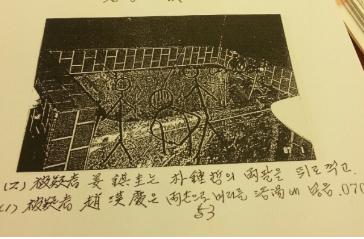 (ㄷ) 被疑者 姜 鎭圭는 朴鍾哲의 両팔을 뒤로 꺾고.
被疑者 趙 漢慶은 両손으로 머리를 浴湯에 넣음 .070
53